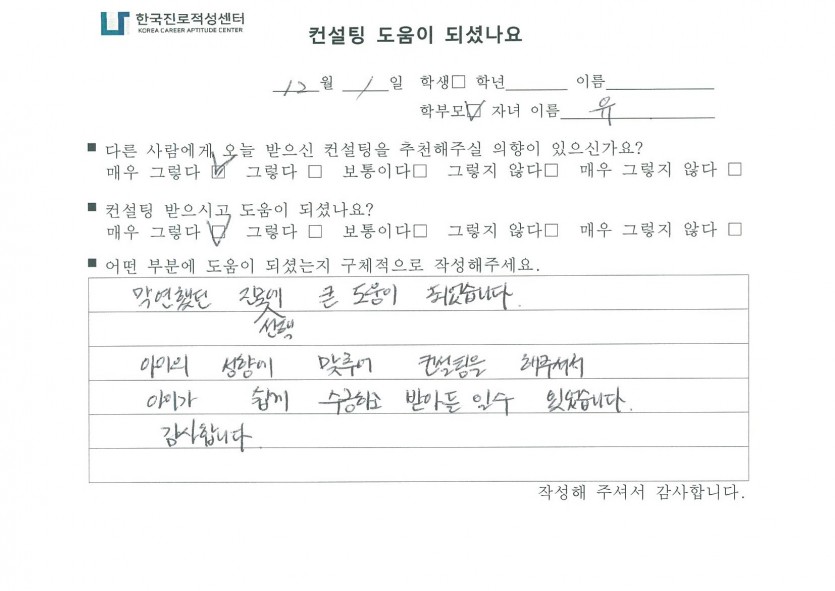 한국진로적성센터
KOREA CAREER APTITUDE CENTER
컨설팅 도움이 되셨나요
12월 1일 학생□ 학년 이름
학부모☑ 자녀 이름 유
■ 다른 사람에게 오늘 받으신 컨설팅을 추천해주실 의향이 있으신가요?
매우 그렇다 ☑ 그렇다 □ 보통이다□ 그렇지 않다□ 매우 그렇지 않다 □
■ 컨설팅 받으시고 도움이 되셨나요?
매우 그렇다 ☑ 그렇다 □ 보통이다□ 그렇지 않다□ 매우 그렇지 않다 □
■ 어떤 부분에 도움이 되셨는지 구체적으로 작성해주세요.
막연했던 진로에 큰 도움이 되었습니다.
선택
아이의 성향에 맞추어 컨설팅을 해주셔서
아이가 쉽게 수긍하고 받아들일수 있었습니다.
감사합니다
작성해 주셔서 감사합니다.